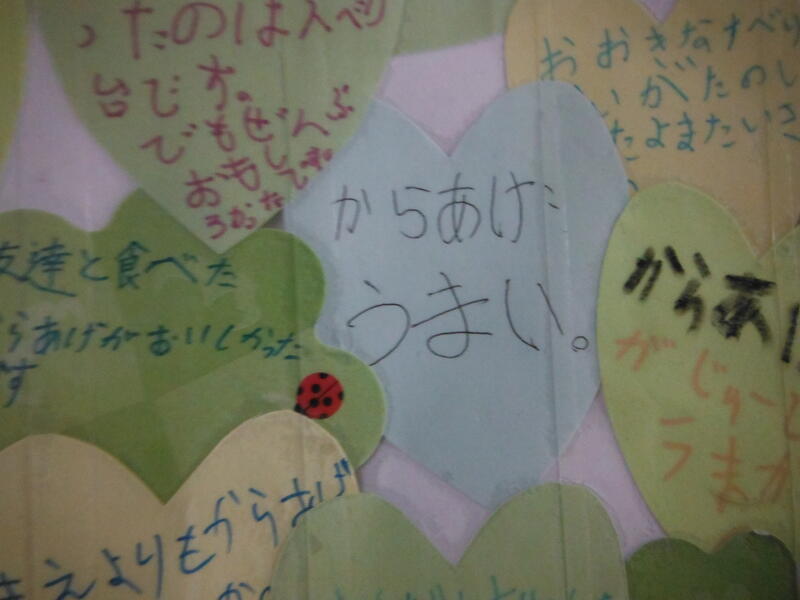 ったのはスベリ
台です。
でもぜんぶ
おもし
ろかった
です
おおきなすべり
がたのし
たよまたいき
からあげ
うまい。
友達と食べた
らあげがおいしかった
です
からあげ
が じゅー
うまか
えよりもからあげ